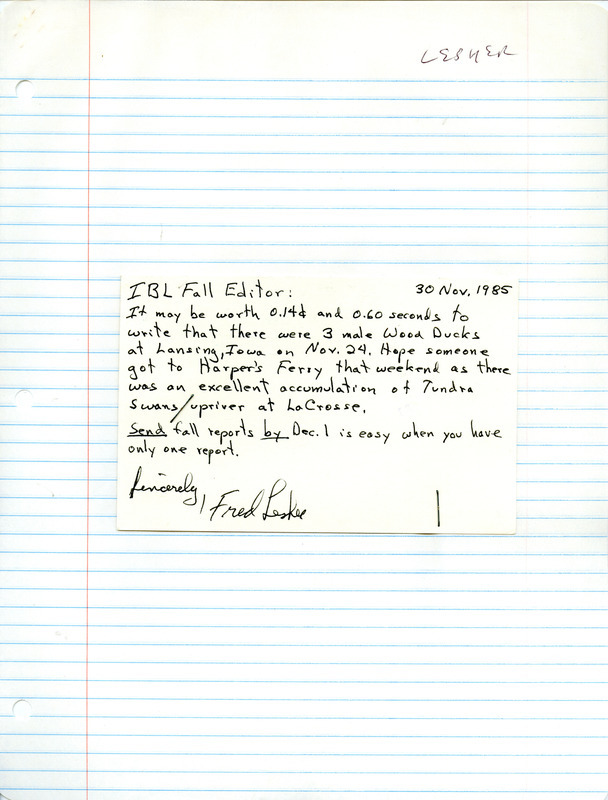 LESHER
IBL Fall Editor:
30 Nov, 1985
It may be worth 0.14¢ and 0.60 seconds to
write that there were 3 male Wood Ducks
at Lansing, Iowa on Nov. 24. Hope someone
got to Harper's Ferry that weekend as there
was an excellent accumulation of Tundra
Swans/upriver at LaCrosse.
Send fall reports by Dec. 1 is easy when you have
only one report.
Sincerely,
Fred Lesher